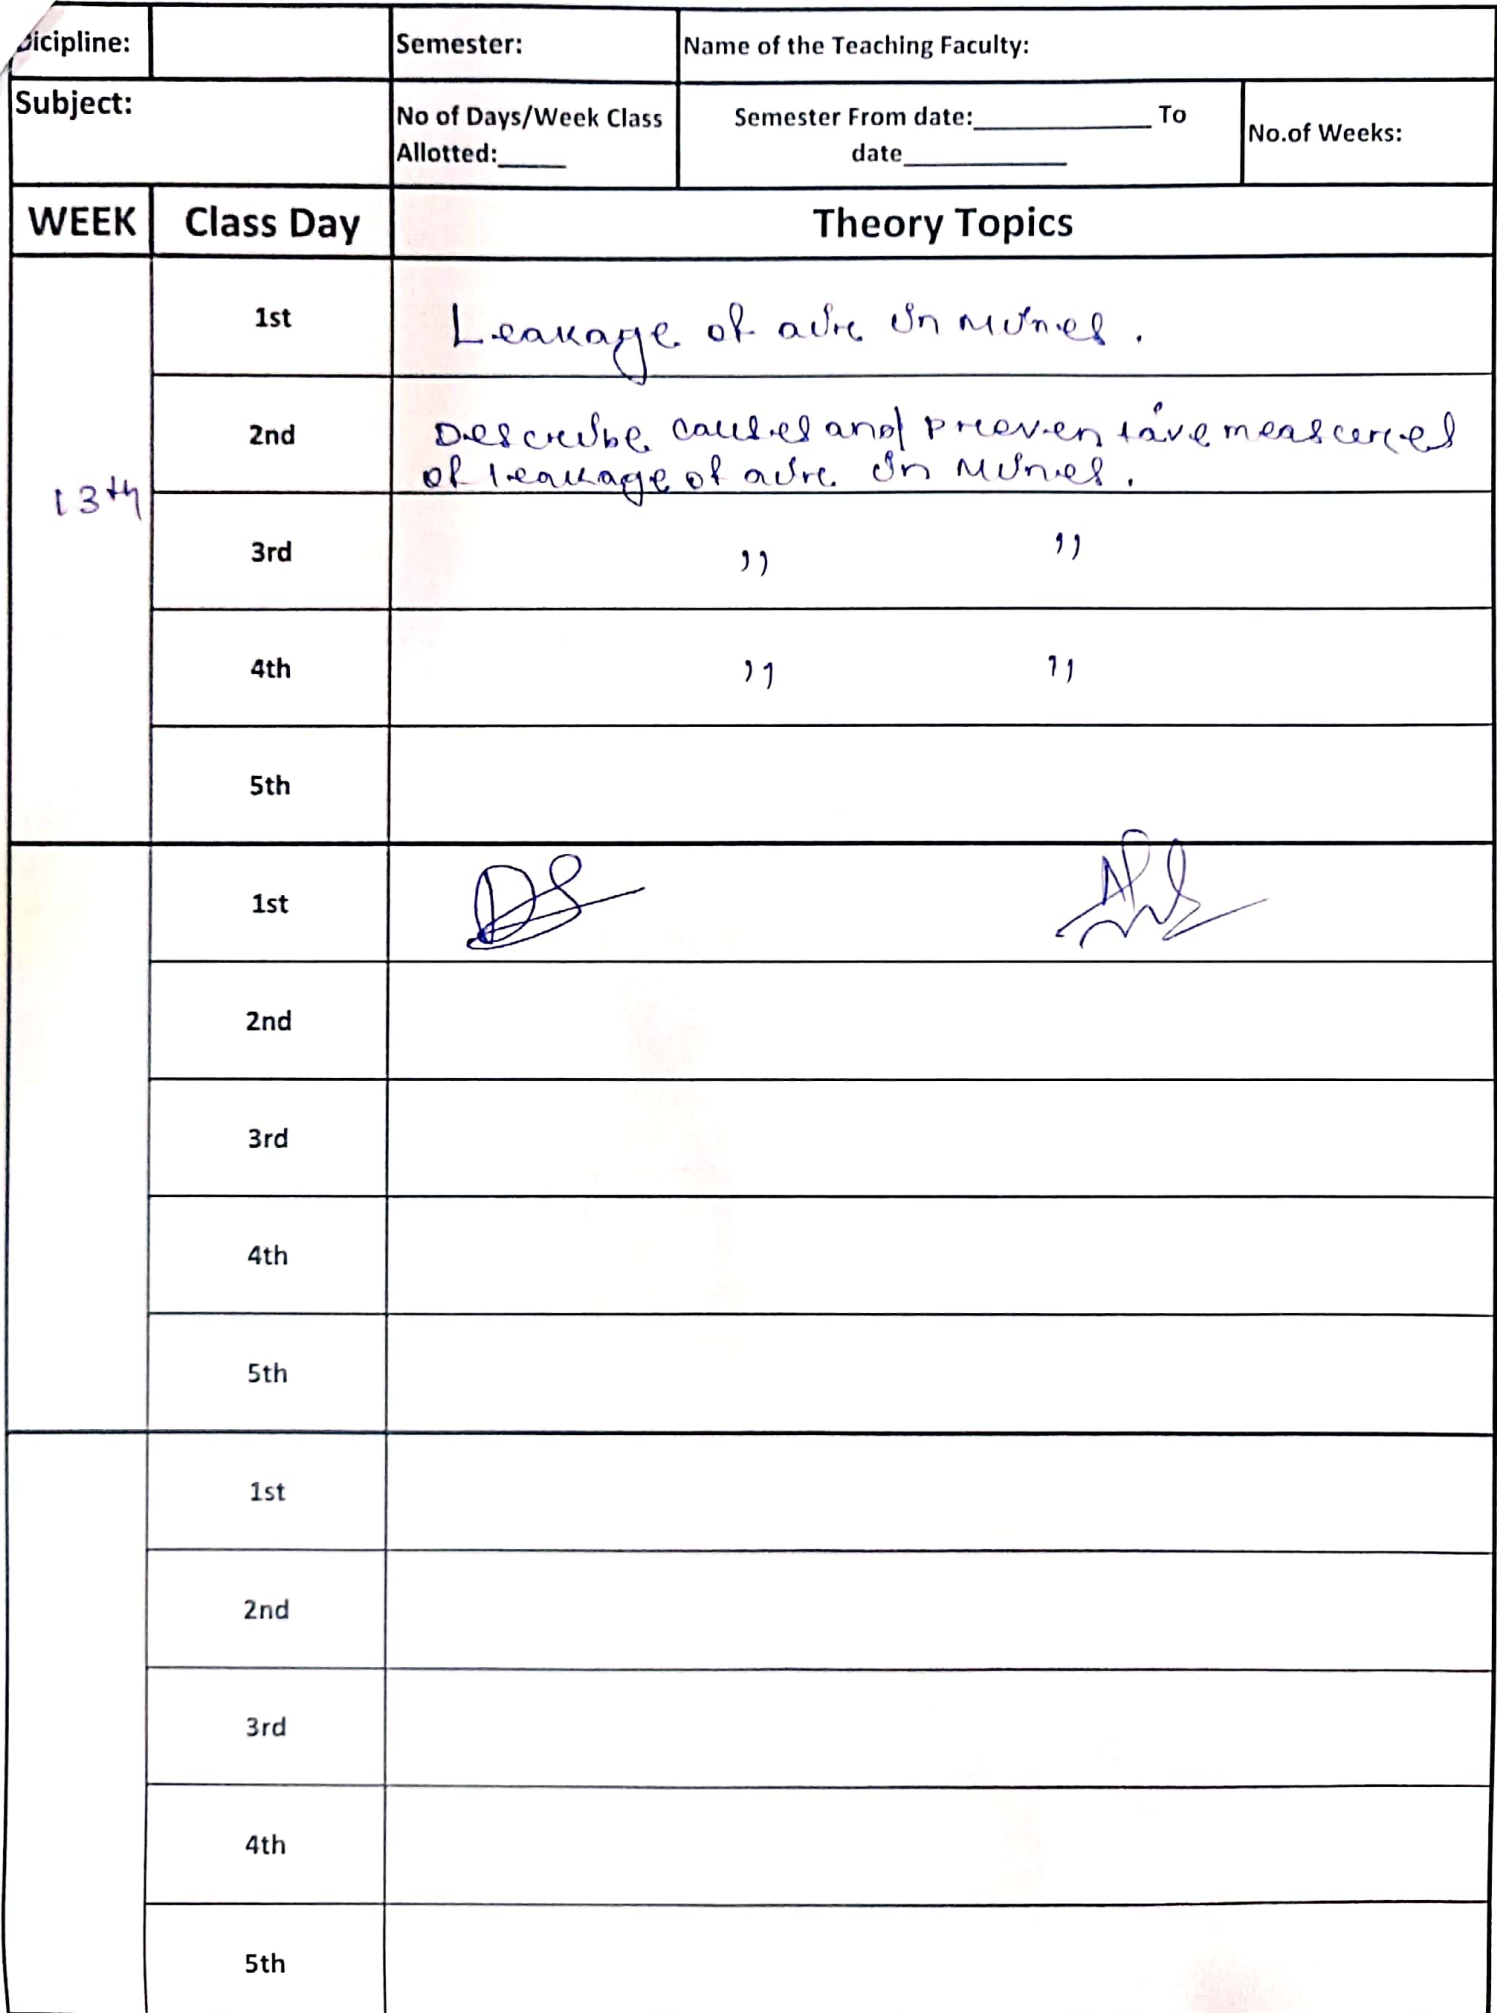 Dicipline:
Semester:
Name of the Teaching Faculty:
Subject:
No of Days/Week Class
Allotted:_____
Semester From date:_____________ To
date____________
No.of Weeks:
WEEK
Class Day
Theory Topics
13th
1st
Leakage of air in mines.
2nd
Describe causes and preventive measures
of leakage of air in mines.
3rd
,, ,,
4th
,, ,,
5th
1st
2nd
3rd
4th
5th
1st
2nd
3rd
4th
5th